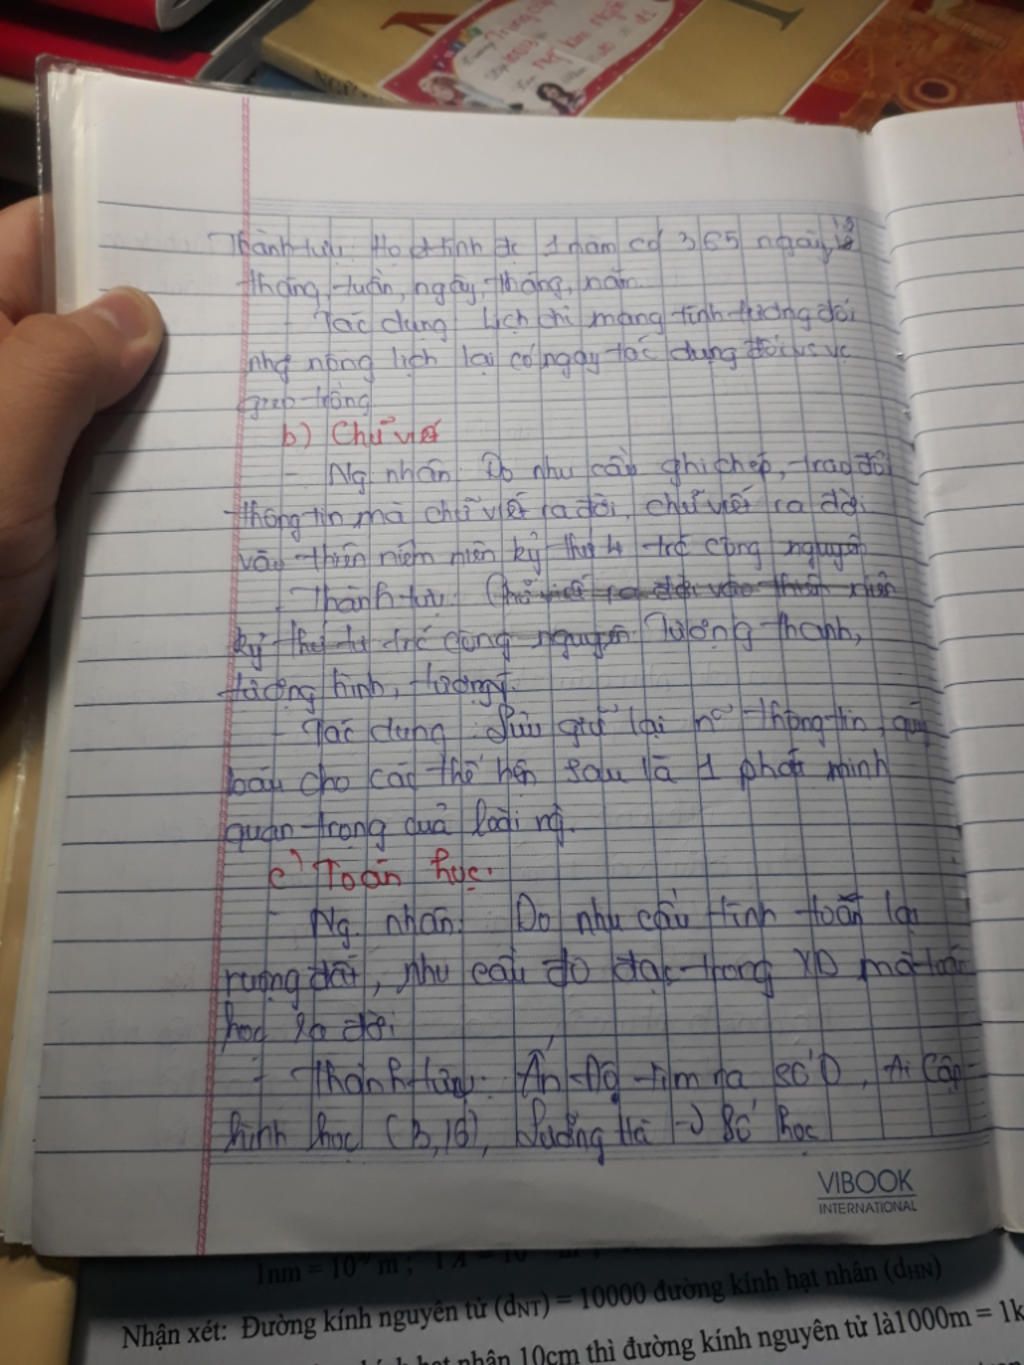 Thành tựu: Họ đã tính đc 1 năm có 365 ngày, 12
tháng, tuần, ngày, tháng, năm.
- Tác dụng: Lịch chỉ mang tính tương đối
nhg nông lịch lại có ngay tác dụng đối vs vc
gieo trồng
b) Chữ viết
- Ng nhân: Do nhu cầu ghi chép, trao đổi
thông tin mà chữ viết ra đời, chữ viết ra đời
vào thiên niêm niên kỷ thứ 4 trc công nguyên
- Thành tựu: Chữ viết ra đời vào thiên niên
kỷ thứ tư trc công nguyên Tượng thanh,
tượng hình, tượng ý.
- Tác dụng: Lưu giữ lại nh~ thông tin quý
báu cho các thế hện sau là 1 phát minh
quan trọng của loài ng.
c) Toán học.
- Ng. nhân: Do nhu cầu tính toán lại
ruộng đất, nhu cầu đo đạc trong XD mà toán
học ra đời
- Thành tựu: Ấn Độ tìm ra số 0, Ai Cập
hình học (3,16), Lưỡng Hà -> Số học
VIBOOK
INTERNATIONAL
1nm = 10 m ; 1A = 10 m ;
Nhận xét: Đường kính nguyên tử (dNT) = 10000 đường kính hạt nhân (dHN)
hạt nhân 10cm thì đường kính nguyên tử là1000m = 1k